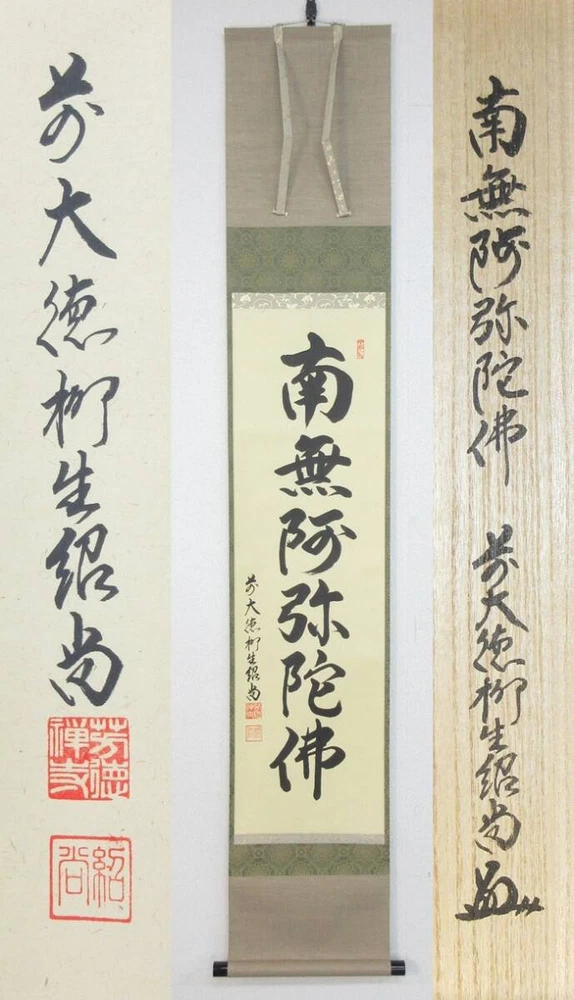 前大徳柳生紹尚
芳徳禅寺
紹尚
南無阿弥陀佛
前大徳柳生紹尚
南無阿弥陀佛 前大徳柳生紹尚